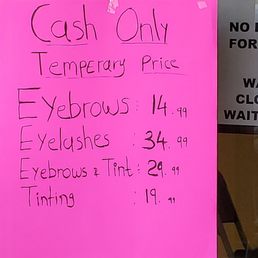 Cash Only
Temperary Price
Eyebrows : 14.99
Eyelashes : 34.99
Eyebrows & Tint : 29.99
Tinting : 19.99
NO
FOR
WA
CLO
WAIT